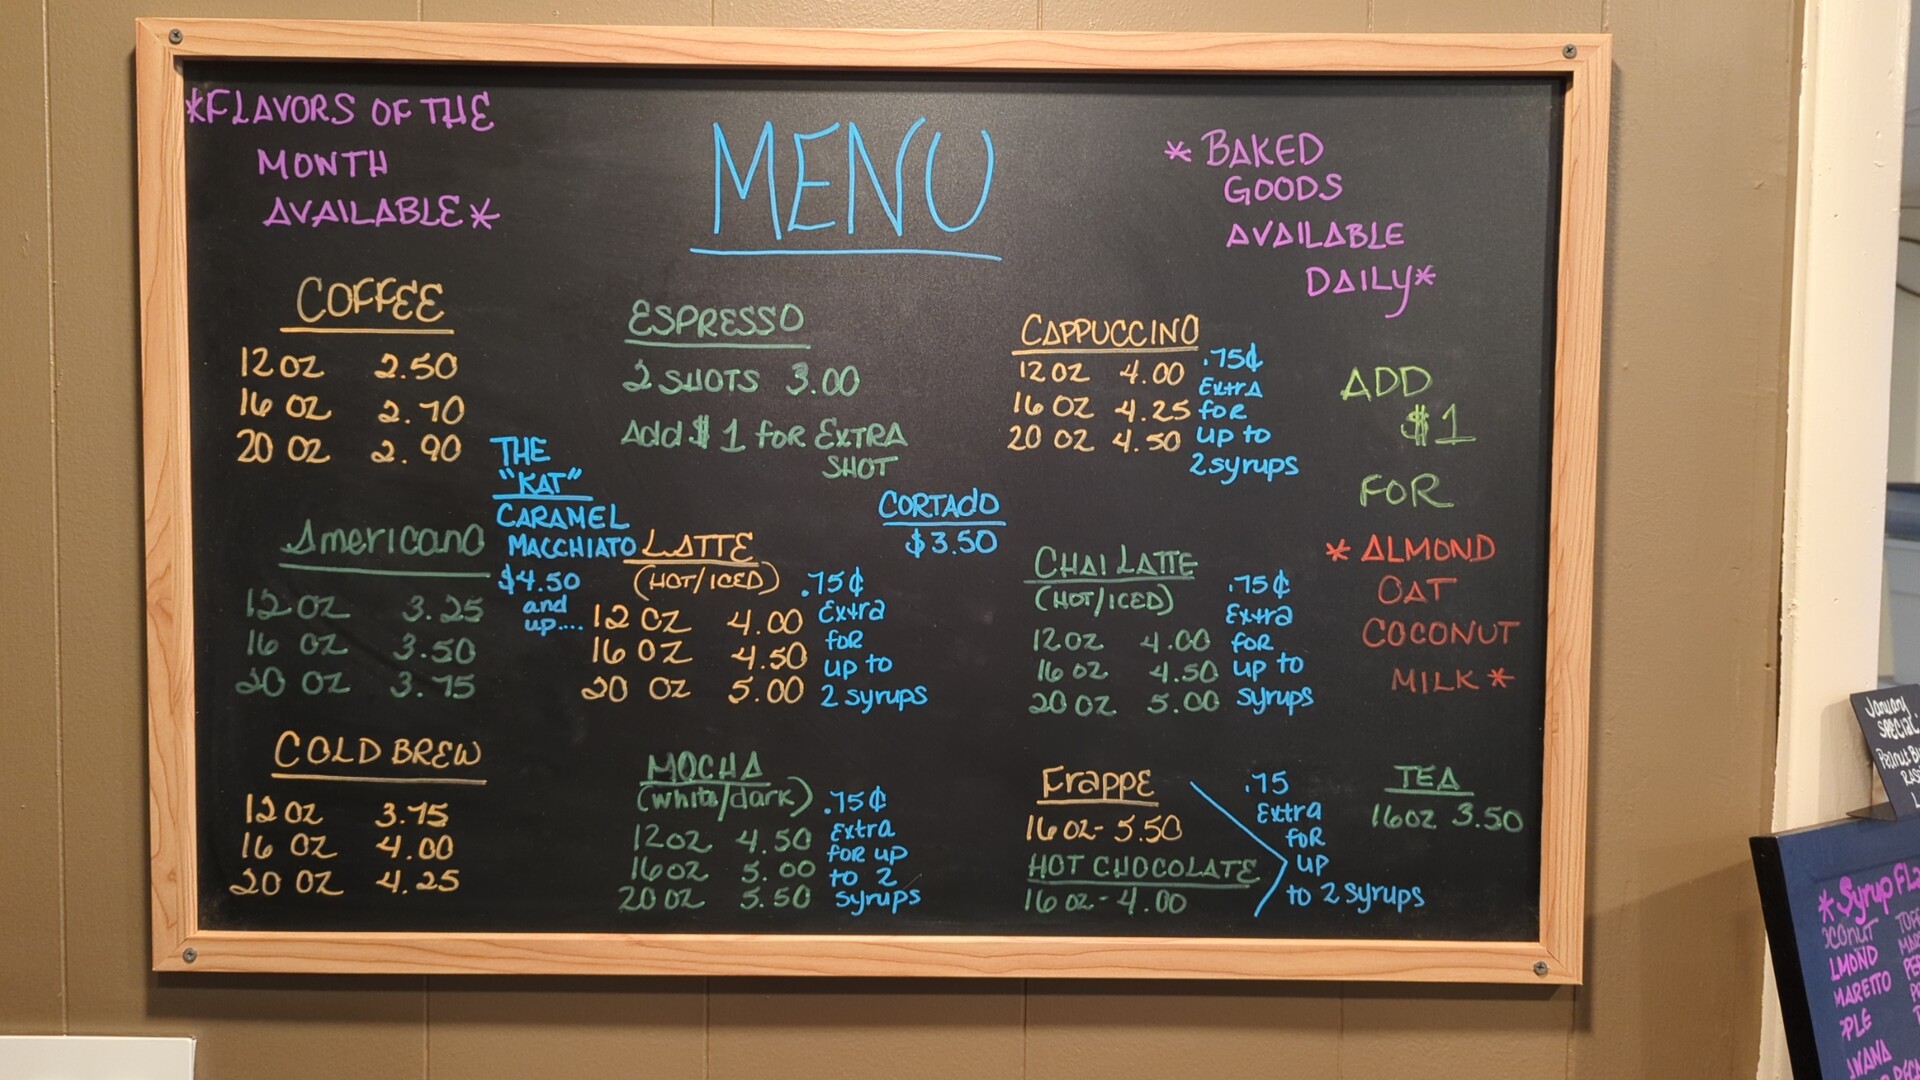 *FLAVORS OF THE
MONTH
AVAILABLE*
MENU
* BAKED
GOODS
AVAILABLE
DAILY*
COFFEE
12 OZ 2.50
16 OZ 2.70
20 OZ 2.90
ESPRESSO
2 SHOTS 3.00
Add $1 for EXTRA
SHOT
CAPPUCCINO
12 OZ 4.00
16 OZ 4.25
20 OZ 4.50
.75¢
Extra
for
up to
2 syrups
ADD
$1
FOR
* ALMOND
OAT
COCONUT
MILK *
THE
"KAT"
CARAMEL
MACCHIATO
$4.50
and
up....
CORTADO
$3.50
Americano
12 OZ 3.25
16 OZ 3.50
20 OZ 3.75
LATTE
(HOT/ICED)
12 OZ 4.00
16 OZ 4.50
20 OZ 5.00
.75¢
Extra
for
up to
2 syrups
CHAI LATTE
(HOT/ICED)
12 OZ 4.00
16 OZ 4.50
20 OZ 5.00
.75¢
Extra
for
up to
syrups
COLD BREW
12 OZ 3.75
16 OZ 4.00
20 OZ 4.25
MOCHA
(white/dark)
12 OZ 4.50
16 OZ 5.00
20 OZ 5.50
.75¢
Extra
for up
to 2
syrups
Frappe
16 OZ- 5.50
HOT CHOCOLATE
16 OZ - 4.00
.75
Extra
for
up
to 2 syrups
TEA
16OZ 3.50
January
Special:
Peanut
*Syrup